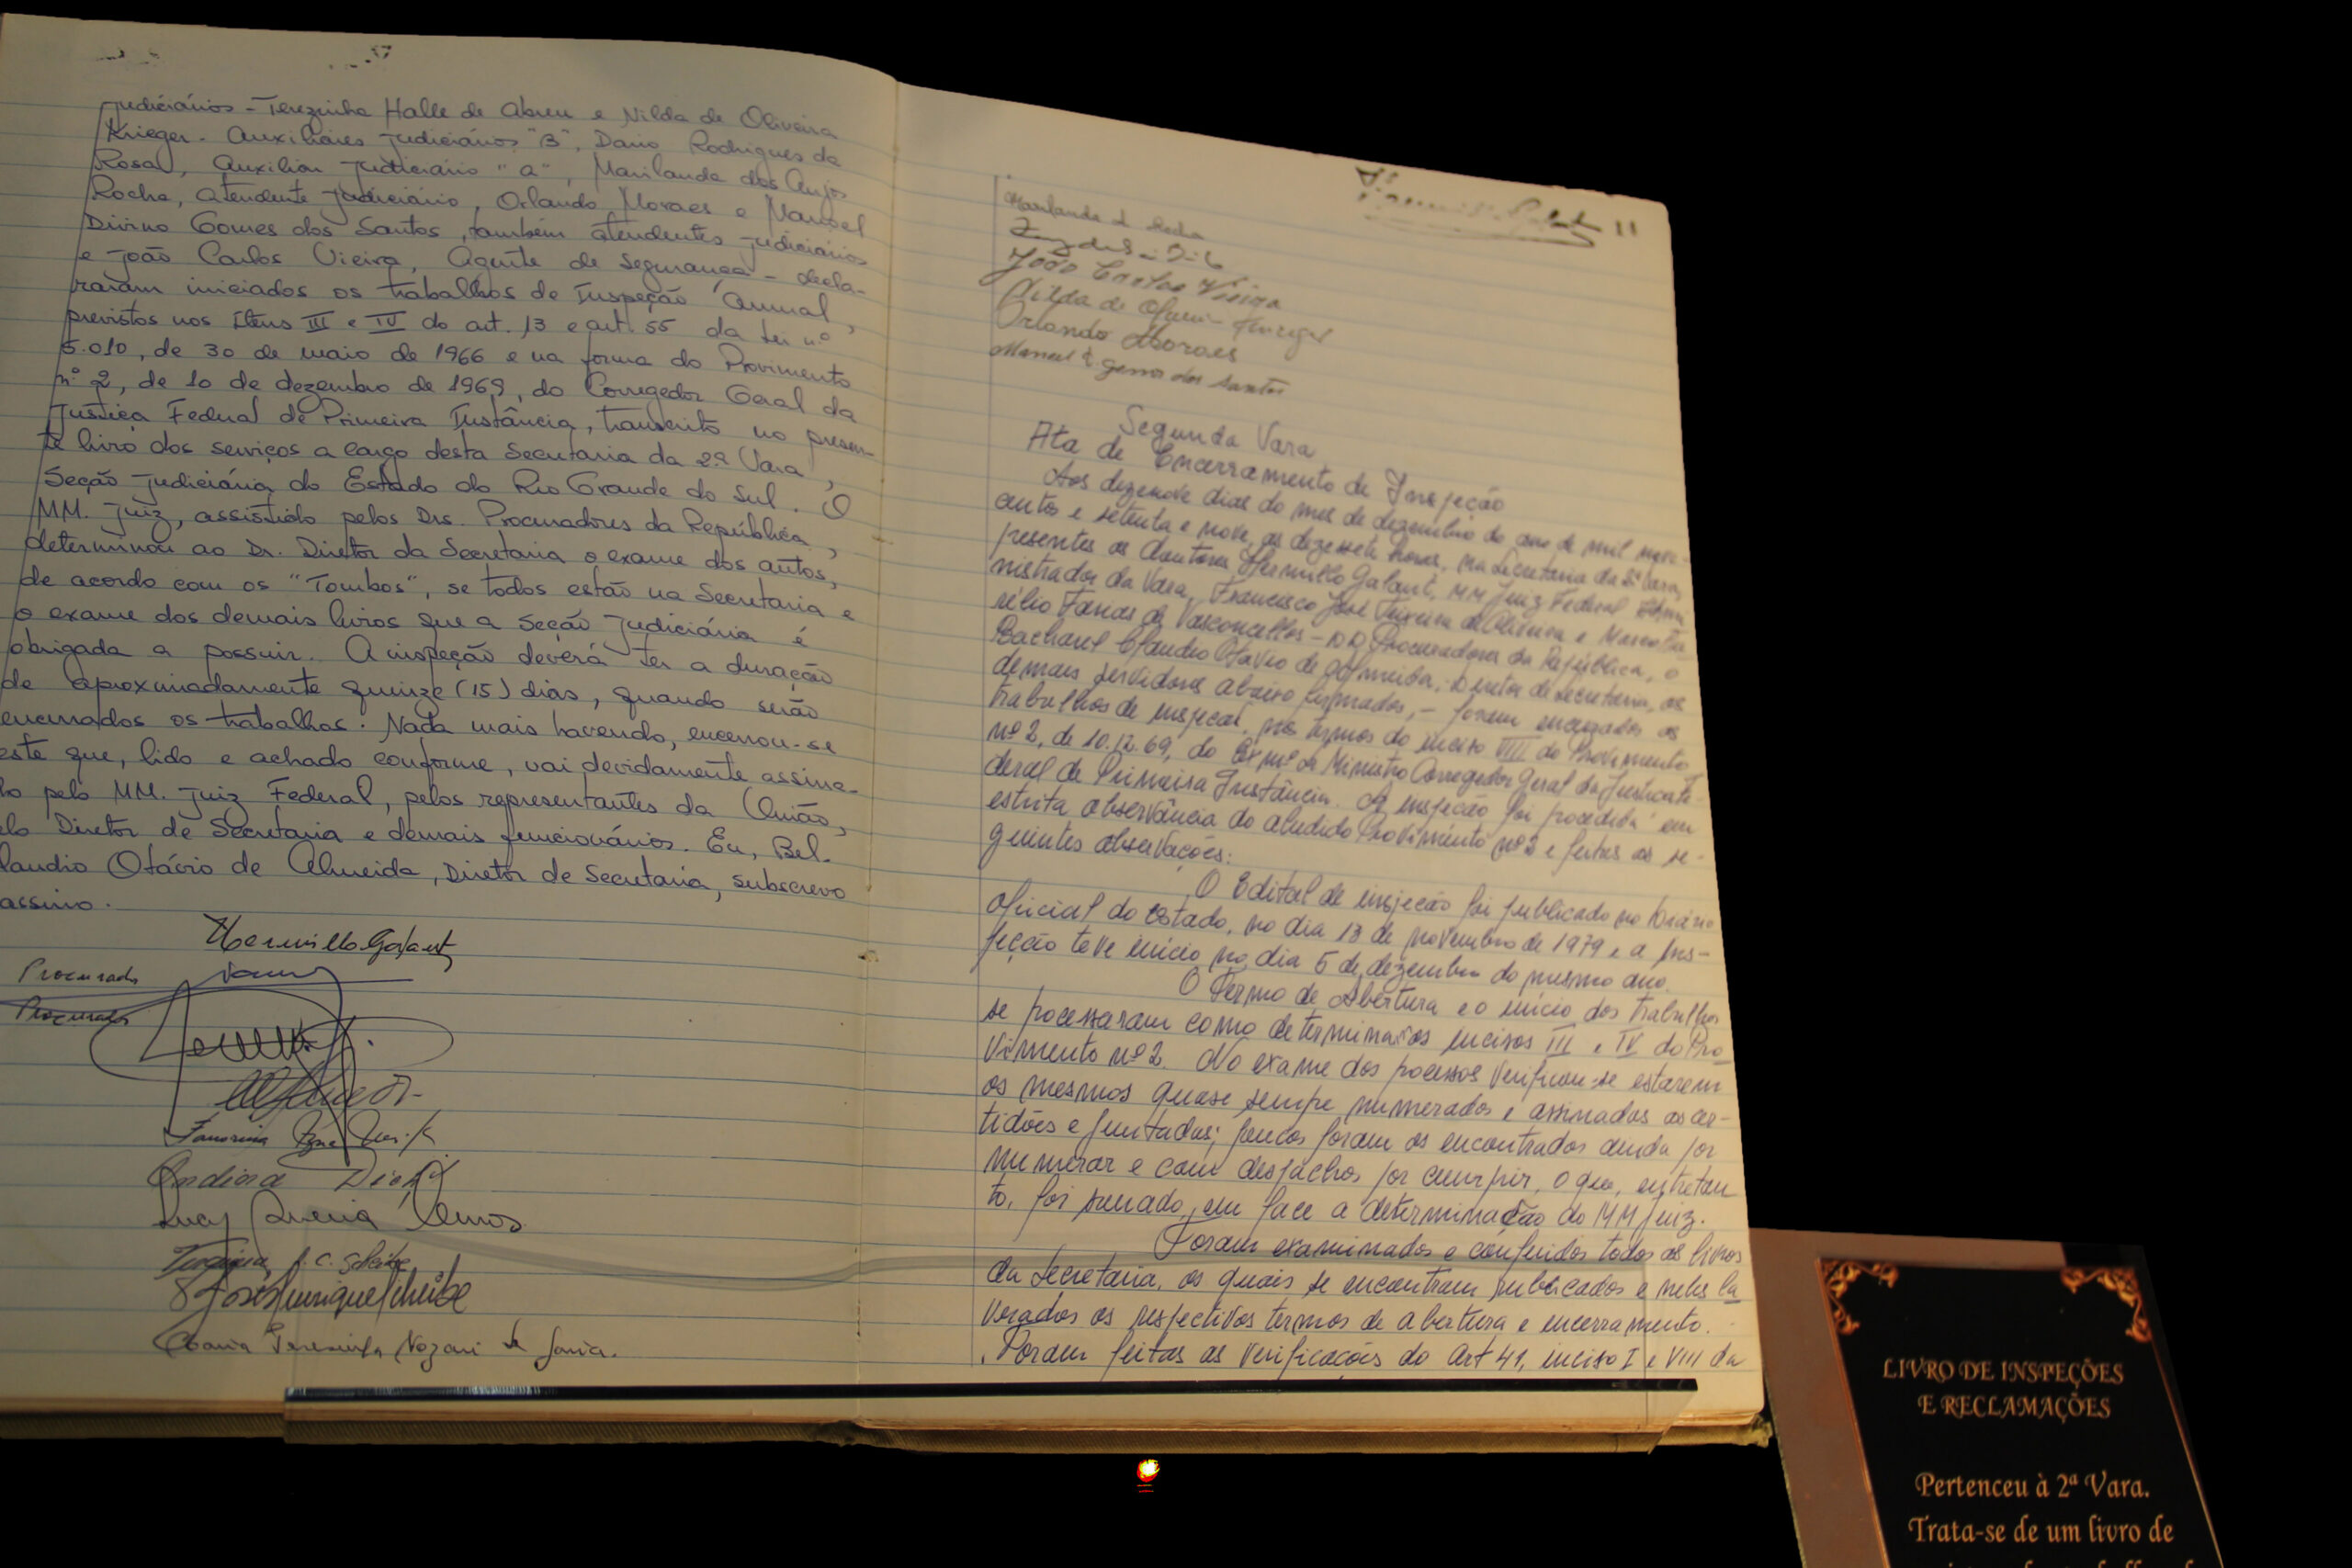 judiciários - Terezinha Halle de Abreu e Nilda de Oliveira
Krieger - Auxiliares judiciários "B", Dario Rodrigues da
Rosa, Auxiliar judiciário "a", Marilanda dos Anjos
Rocha, atendente judiciário, Orlando Moraes e Manoel
Divino Gomes dos Santos, também atendentes judiciários
e João Carlos Vieira, Agente de Segurança - decla-
raram iniciados os trabalhos de Inspeção Annual,
previstos nos Itens III e IV do art. 13 e art. 55 da Lei nº
5.010, de 30 de maio de 1966 e na forma do Provimento
nº 2, de 10 de dezembro de 1969, do Corregedor Geral da
Justiça Federal de Primeira Instância, transcrito no presen-
te livro dos serviços a cargo desta Secretaria da 2ª Vara,
Seção Judiciária do Estado do Rio Grande do Sul. O
MM. Juiz, assistido pelos Drs. Procuradores da República,
determinou ao Dr. Diretor da Secretaria o exame dos autos,
de acordo com os "Tombos", se todos estão na Secretaria e
o exame dos demais livros que a Seção Judiciária é
obrigada a possuir. A inspeção deverá ter a duração
de aproximadamente quinze (15) dias, quando serão
encerrados os trabalhos. Nada mais havendo, encerrou-se
este que, lido e achado conforme, vai devidamente assina-
do pelo MM. Juiz Federal, pelos representantes da União,
elo Diretor de Secretaria e demais funcionários. Eu, Bel.
laudio Otávio de Almeida, Diretor de Secretaria, subscrevo
assino.
Hermillo Galant
Procurador
Procurador
Andiara
Lucy
J. C. Scheibe
José Henrique Scheibe
Maria Teresinha de Faria.
11
Marilanda
João Carlos Vieira
Nilda de Oliveira Krieger
Orlando Moraes
Manoel D. Gomes dos Santos
Segunda Vara
Ata de Encerramento de Inspeção
Aos dezenove dias do mes de dezembro do ano de mil nove-
centos e setenta e nove, as dezessete horas, na Secretaria da 2ª Vara,
presentes os doutores Hermillo Galant, MM Juiz Federal Admi
nistrador da Vara, Francisco José Teixeira de Oliveira e Marco Au
rélio Farias de Vasconcellos - DD Procuradores da República, o
Bacharel Claudio Otavio de Almeida, Diretor de Secretaria, os
demais servidores abaixo firmados, - foram encerrados os
trabalhos de inspeção, nos termos do inciso VIII do Provimento
nº 2, de 10.12.69, do Exmº Sr Ministro Corregedor Geral da Justiça Fe-
deral de Primeira Instância. A inspeção foi procedida em
estrita observância do aludido Provimento nº 2 e feitas as se-
guintes observações:
O Edital de inspeção foi publicado no Diário
Oficial do Estado, no dia 13 de novembro de 1979 e a Ins-
peção teve início no dia 5 de dezembro do mesmo ano.
O Termo de Abertura e o início dos trabalhos
se processaram como determina os incisos III e IV do Pro
vimento nº 2. No exame dos processos verificou-se estarem
os mesmos quase sempre numerados e assinados as cer-
tidões e juntadas; poucos foram os encontrados ainda por
numerar e com despachos por cumprir, o que, entretan
to, foi sanado, em face a determinação do MM Juiz.
Foram examinados e conferidos todos os livros
da Secretaria, os quais se encontram rubricados e neles la
vrados os respectivos termos de abertura e encerramento.
Foram feitas as verificações do Art 41, inciso I e VIII da
LIVRO DE INSPEÇÕES
E RECLAMAÇÕES
Pertenceu à 2ª Vara.
Trata-se de um livro de